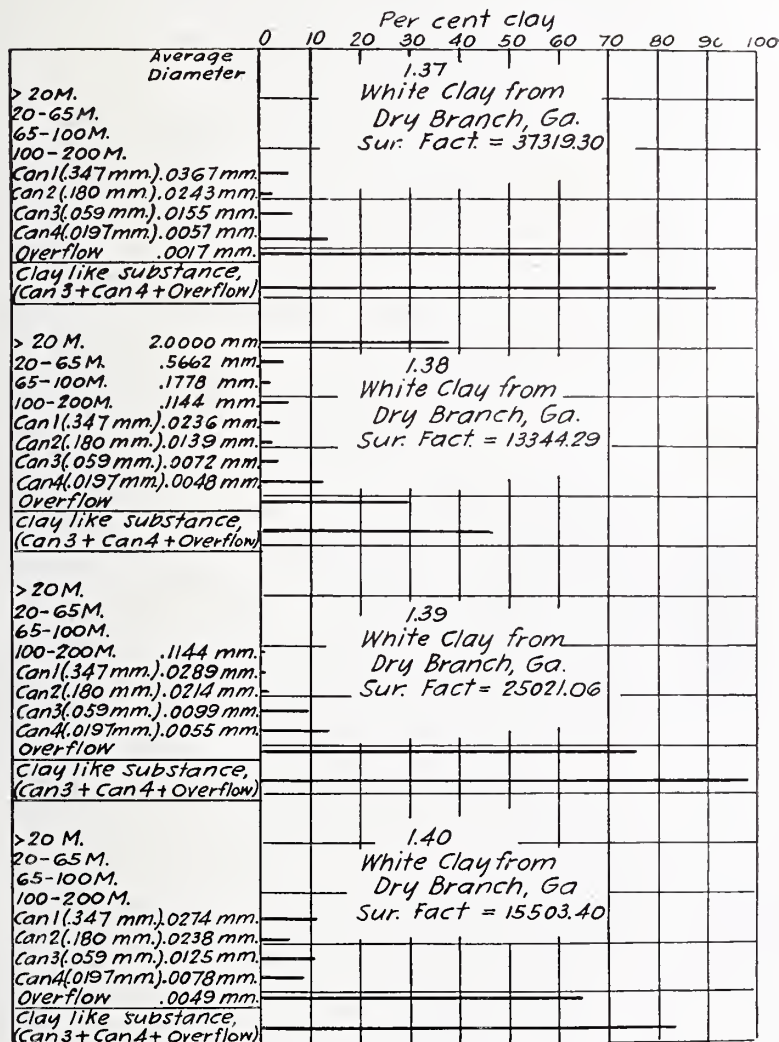 Per cent clay
0 10 20 30 40 50 60 70 80 90 100
Average
Diameter
> 20M.
20-65M.
65-100M.
100-200M.
Can1(.347mm.).0367mm.
Can2(.180mm.).0243mm.
Can3(.059mm.).0155mm.
Can4(.0197mm.).0057mm.
Overflow .0017 mm.
Clay like substance,
(Can 3 + Can 4 + Overflow)
1.37
White Clay from
Dry Branch, Ga.
Sur. Fact. = 37319.30
> 20 M. 2.0000 mm.
20-65M. .5662 mm.
65-100M. .1778 mm.
100-200M. .1144 mm.
Can1(.347mm.).0236mm.
Can2(.180mm.).0139mm.
Can3(.059mm.).0072mm.
Can4(.0197mm.).0048mm.
Overflow
Clay like substance,
(Can 3 + Can 4 + Overflow)
1.38
White Clay from
Dry Branch, Ga.
Sur. Fact. = 13344.29
> 20M.
20-65M.
65-100M.
100-200M. .1144 mm.
Can1(.347mm.).0289mm.
Can2(.180mm.).0214mm.
Can3(.059mm.).0099mm.
Can4(.0197mm.).0055mm.
Overflow
Clay like substance,
(Can 3 + Can 4 + Overflow)
1.39
White Clay from
Dry Branch, Ga.
Sur. Fact = 25021.06
> 20 M.
20-65M.
65-100M.
100-200M.
Can1(.347mm.).0274mm.
Can2(.180mm.).0238mm.
Can3(.059mm.).0125mm.
Can4(.0197mm).0078mm.
Overflow .0049 mm.
Clay like substance,
(Can 3 + Can 4 + Overflow)
1.40
White Clay from
Dry Branch, Ga
Sur. Fact = 15503.40